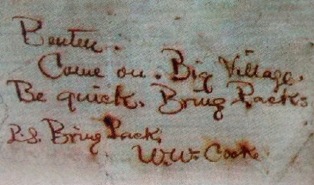 Benteen.
Come on. Big Village.
Be quick. Bring Packs
P.S. Bring Packs.
W.W. Cooke